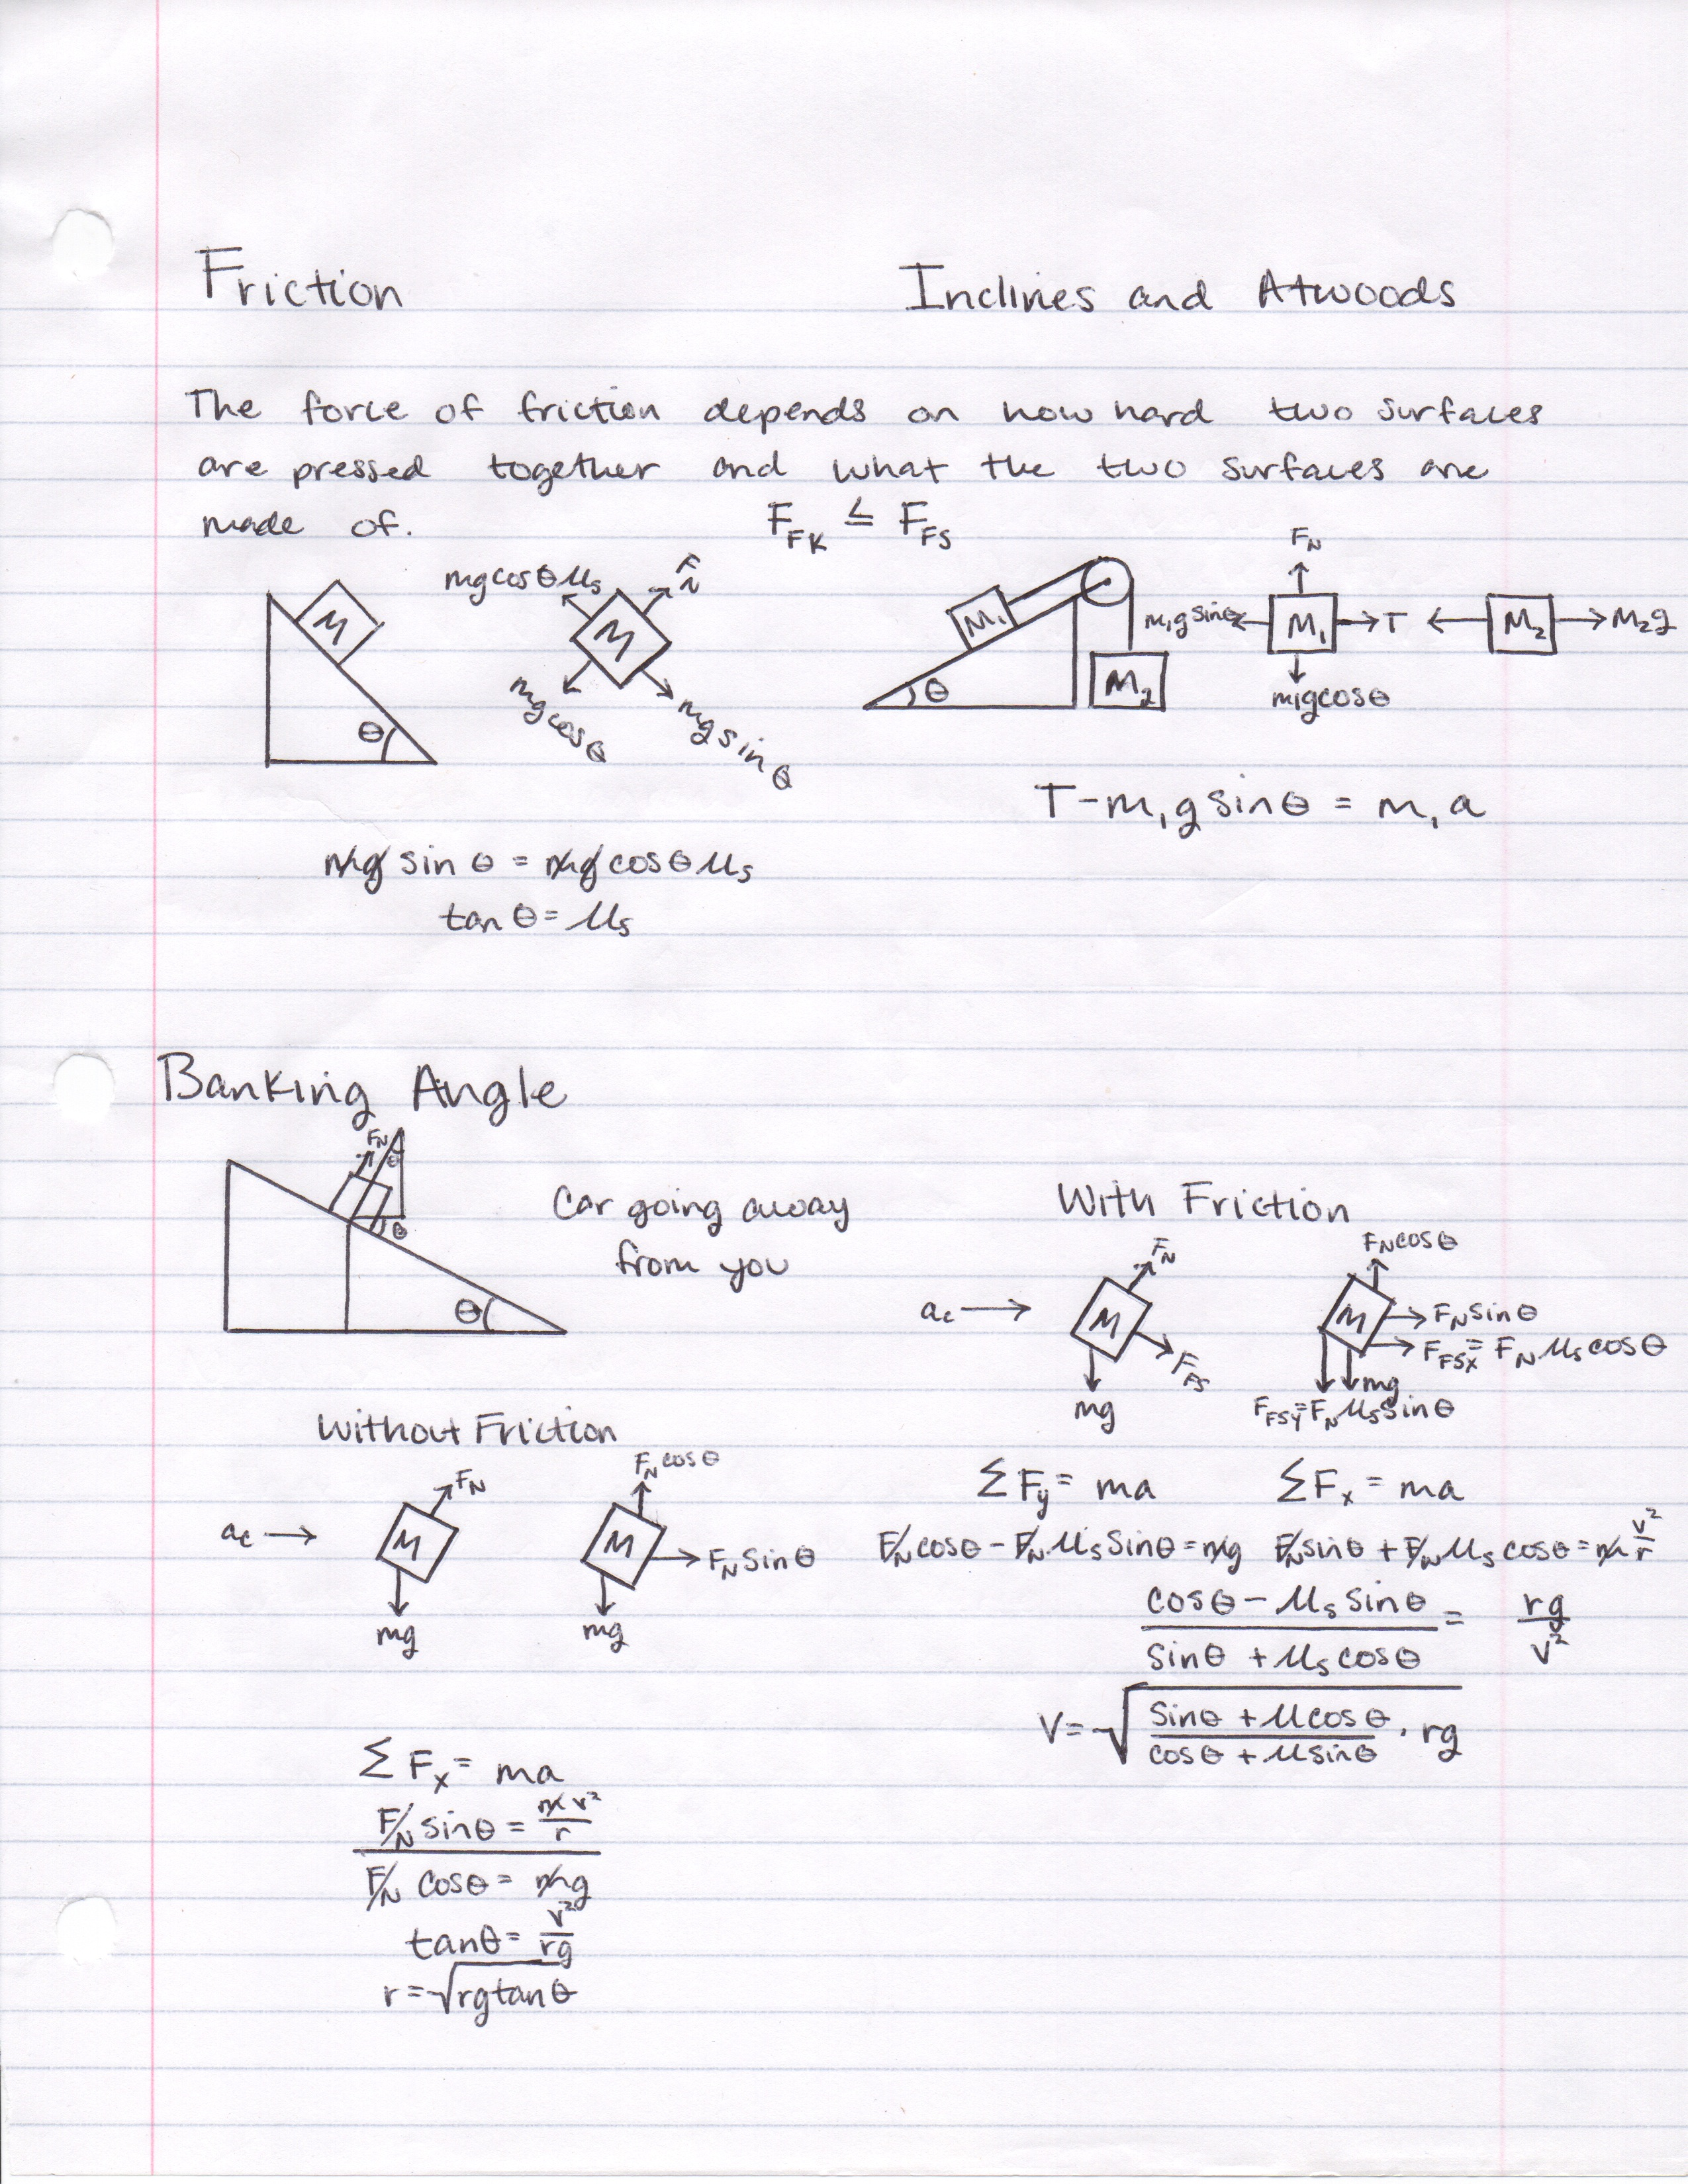 Friction
Inclines and Atwoods
The force of friction depends on how hard two surfaces
are pressed together and what the two surfaces are
made of.
F_FK ≤ F_FS
M
θ
mgcosθμs
F_N
M
mgcosθ
mgsinθ
mg sin θ = mg cosθμs
tan θ = μs
M₁
θ
M₂
F_N
m₁gsinθ
M₁
T
m₁gcosθ
M₂
M₂g
T-m₁gsinθ = m₁a
Banking Angle
F_N
θ
θ
θ
Car going away
from you
Without Friction
a_c
F_N
M
mg
F_N cosθ
M
F_N Sinθ
mg
ΣF_x = ma
F_N sinθ = mv²/r
F_N cosθ = mg
tanθ = v²/rg
r = √rgtanθ
With Friction
a_c
F_N
M
F_FS
mg
F_N cosθ
M
F_N sinθ
F_FSx = F_N μs cosθ
mg
F_FSy = F_N μs sinθ
ΣF_y = ma
ΣF_x = ma
F_N cosθ - F_N μs Sinθ = mg
F_N sinθ + F_N μs cosθ = m v²/r
cosθ - μs sinθ / sinθ + μs cosθ = rg/v²
V = √ sinθ + μcosθ / cosθ + μsinθ · rg